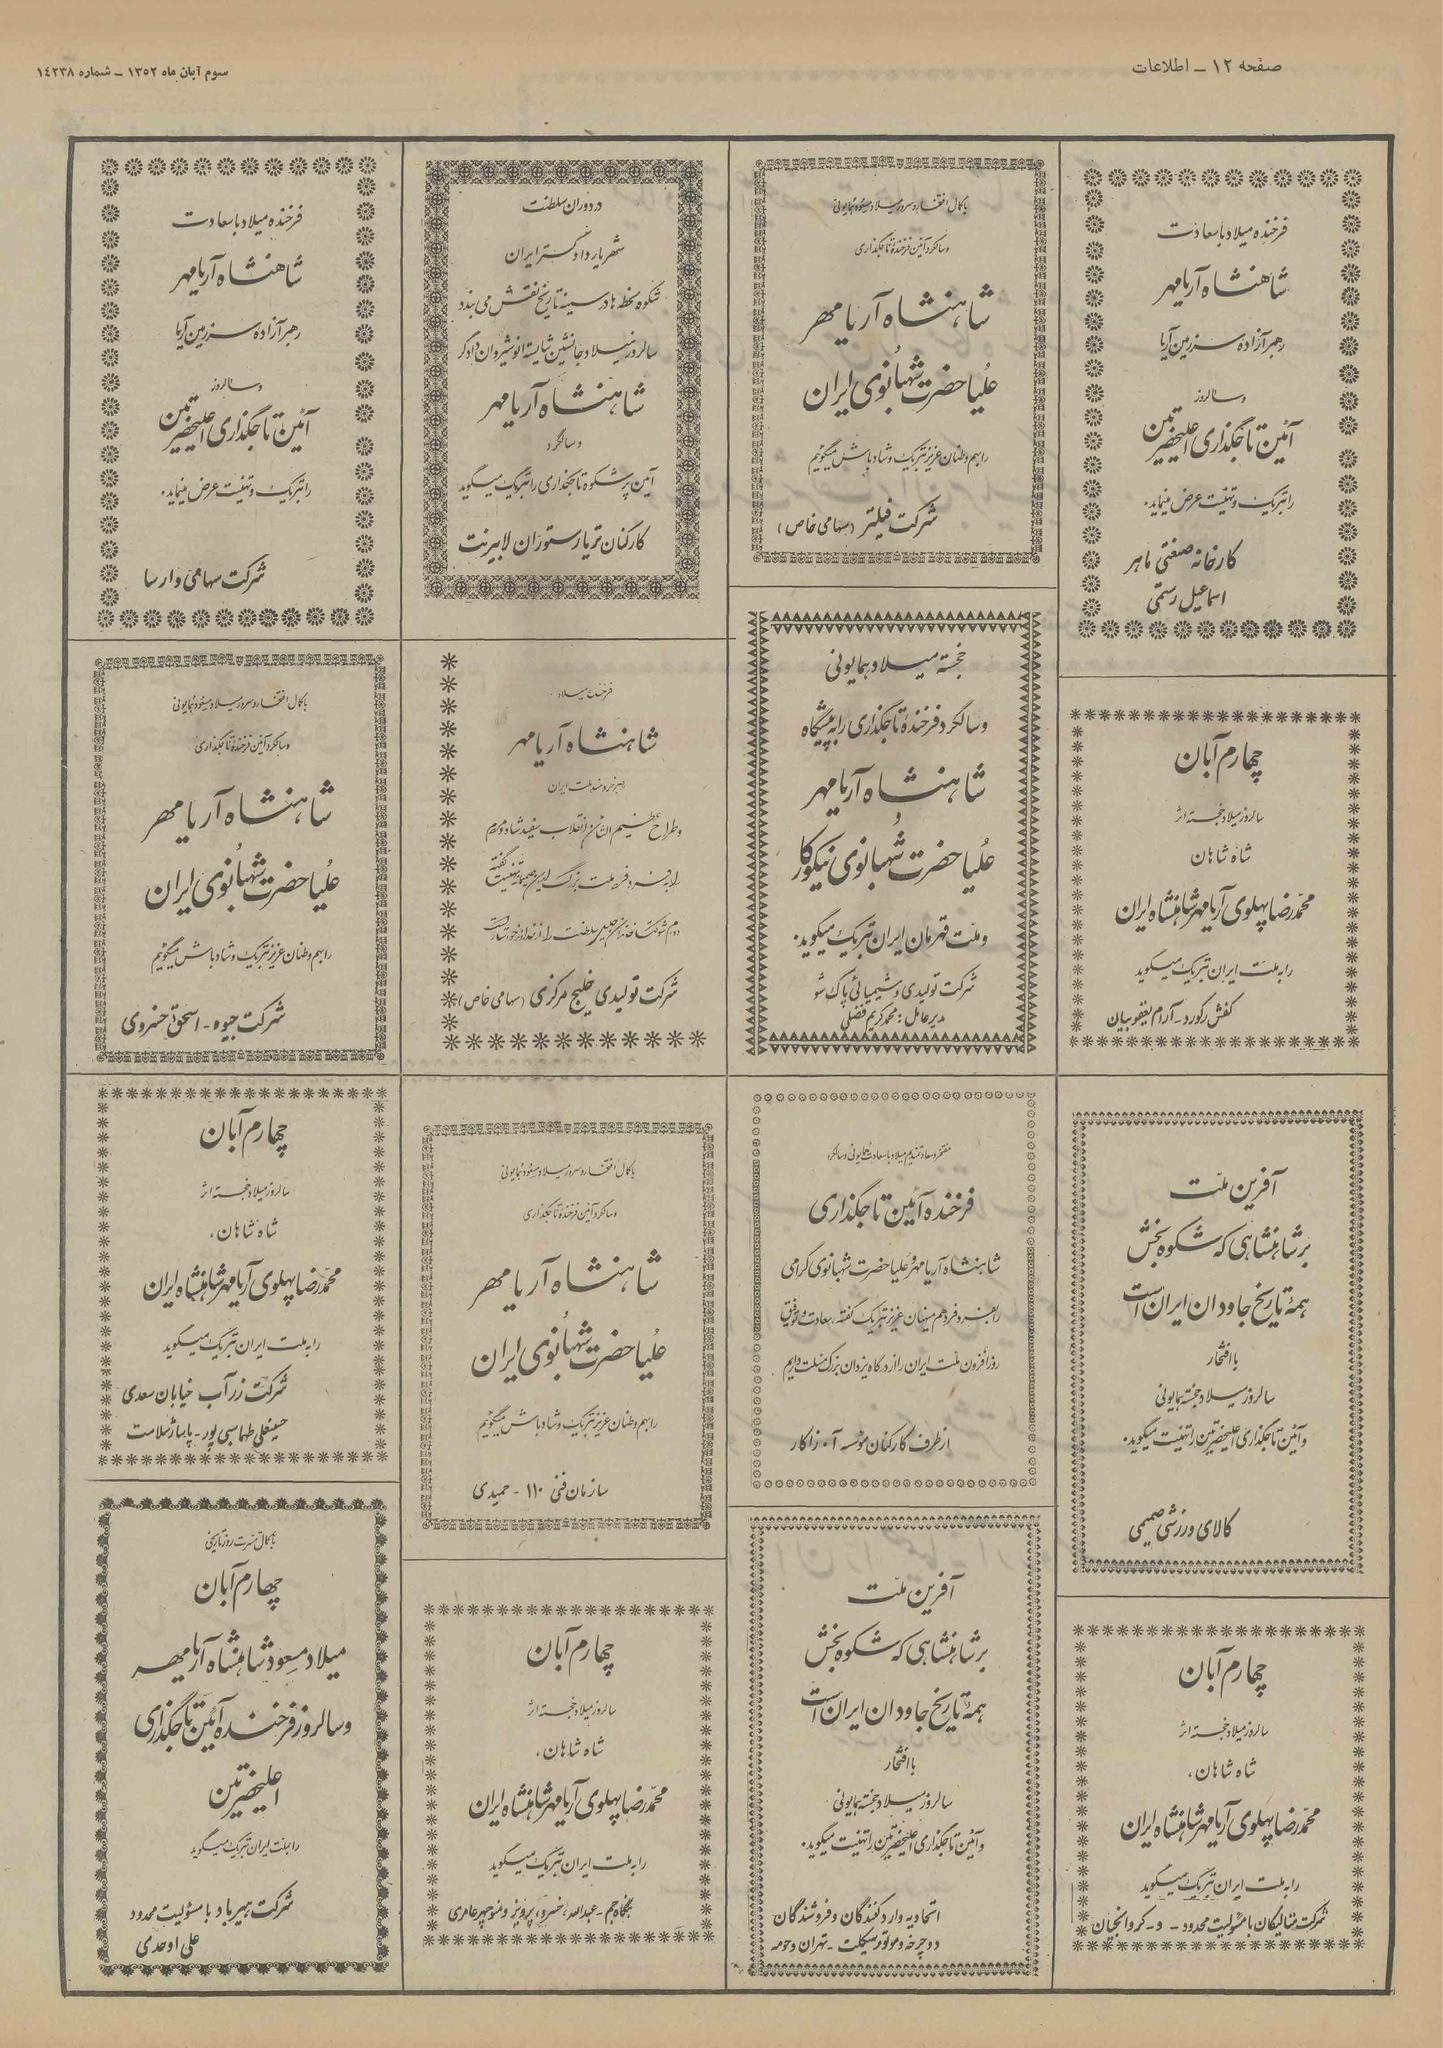 صفحه ۱۲ ـ اطلاعات
سوم آبان ماه ۱۳۵۲ ـ شماره ۱۴۲۳۸
فرخنده میلاد با سعادت
شاهنشاه آریامهر
رهبر آزاده سرزمین آریا
و سالروز
آئین تاجگذاری اعلیحضرتین
را تبریک و تهنیت عرض مینماید.
کارخانه صنعتی ماهر
اسماعیل رستمی
چهارم آبان
سالروز میلاد خجسته اثر
شاه شاهان
محمدرضا پهلوی آریامهر شاهنشاه ایران
را به ملت ایران تبریک میگوید
کفش رکورد - آرام یعقوبیان
آفرین ملت
بر شاهنشاهی که شکوه بخش
همه تاریخ جاودان ایران است
با افتخار
سالروز میلاد خجسته همایونی
و آئین تاجگذاری اعلیحضرتین را تهنیت میگوید.
کالای ورزشی صمیمی
چهارم آبان
سالروز میلاد خجسته اثر
شاه شاهان،
محمدرضا پهلوی آریامهر شاهنشاه ایران
را به ملت ایران تبریک میگوید
شرکت با مسئولیت محدود -
با کمال افتخار و سرور میلاد مسعود همایونی
و سالگرد آئین فرخنده تاجگذاری
شاهنشاه آریامهر
علیاحضرت شهبانوی ایران
را بهم وطنان عزیز تبریک و شادباش میگوئیم
شرکت فیلتر (سهامی خاص)
خجسته میلاد همایونی
و سالگرد فرخنده تاجگذاری را به پیشگاه
شاهنشاه آریامهر
و
علیاحضرت شهبانوی نیکوکار
و ملت قهرمان ایران تبریک میگوید.
شرکت تولیدی و شیمیائی پاک شو
مدیر عامل : محمد کریم فضلی
مفتخر و سعادتمندیم میلاد با سعادت همایونی و سالگرد
فرخنده آئین تاجگذاری
شاهنشاه آریامهر و علیاحضرت شهبانوی گرامی
را بفرد فرد هم میهنان عزیز تبریک گفته، سعادت و توفیق
روزافزون ملت ایران را از درگاه یزدان بزرگ مسئلت داریم
از طرف کارکنان موسسه آ. زاکار
آفرین ملت
بر شاهنشاهی که شکوه بخش
همه تاریخ جاودان ایران است
با افتخار
سالروز میلاد خجسته همایونی
و آئین تاجگذاری اعلیحضرتین را تهنیت میگوید.
اتحادیه واردکنندگان و فروشندگان
دوچرخه و موتورسیکلت - تهران و حومه
در دوران سلطنت
شهریار دادگستر ایران
شکوه لحظه ها در سینه تاریخ نقش می بندد
سالروز میلاد جانشین شایسته انوشیروان دادگر
شاهنشاه آریامهر
و سالگرد
آئین پرشکوه تاجگذاری را تبریک میگوید
کارکنان تریا رستوران لابیرنت
فرخنده میلاد
شاهنشاه آریامهر
رهبر خردمند ملت ایران
و طراح عظیم الشأن انقلاب سفید شاه و مردم
را به فرد فرد ملت بزرگ ایران صمیمانه تهنیت گفته
دوام شوکت خاندان جلیل سلطنت را از خداوند
شرکت تولیدی خلیج مرکزی (سهامی خاص)
با کمال افتخار و سرور میلاد مسعود همایونی
و سالگرد آئین فرخنده تاجگذاری
شاهنشاه آریامهر
علیاحضرت شهبانوی ایران
را بهم وطنان عزیز تبریک و شادباش میگوئیم
سازمان فنی ۱۱۰ - حمیدی
چهارم آبان
سالروز میلاد خجسته اثر
شاه شاهان،
محمدرضا پهلوی آریامهر شاهنشاه ایران
را به ملت ایران تبریک میگوید
بنگاه جم - عبدالله، خسرو، پرویز و منوچهر عامری
فرخنده میلاد با سعادت
شاهنشاه آریامهر
رهبر آزاده سرزمین آریا
و سالروز
آئین تاجگذاری اعلیحضرتین
را تبریک و تهنیت عرض مینماید.
شرکت سهامی وارسا
با کمال افتخار و سرور میلاد مسعود همایونی
و سالگرد آئین فرخنده تاجگذاری
شاهنشاه آریامهر
علیاحضرت شهبانوی ایران
را بهم وطنان عزیز تبریک و شادباش میگوئیم
شرکت جیوه - اسحق خسروی
چهارم آبان
سالروز میلاد خجسته اثر
شاه شاهان،
محمدرضا پهلوی آریامهر شاهنشاه ایران
را به ملت ایران تبریک میگوید
شرکت زر آب خیابان سعدی
حسینعلی طهماسبی پور - پاساژ سلامت
با کمال مسرت روز تاریخی
چهارم آبان
میلاد مسعود شاهنشاه آریامهر
و سالروز فرخنده آئین تاجگذاری
اعلیحضرتین
را بملت ایران تبریک میگوید
شرکت بهیرباد با مسئولیت محدود
علی اوحدی